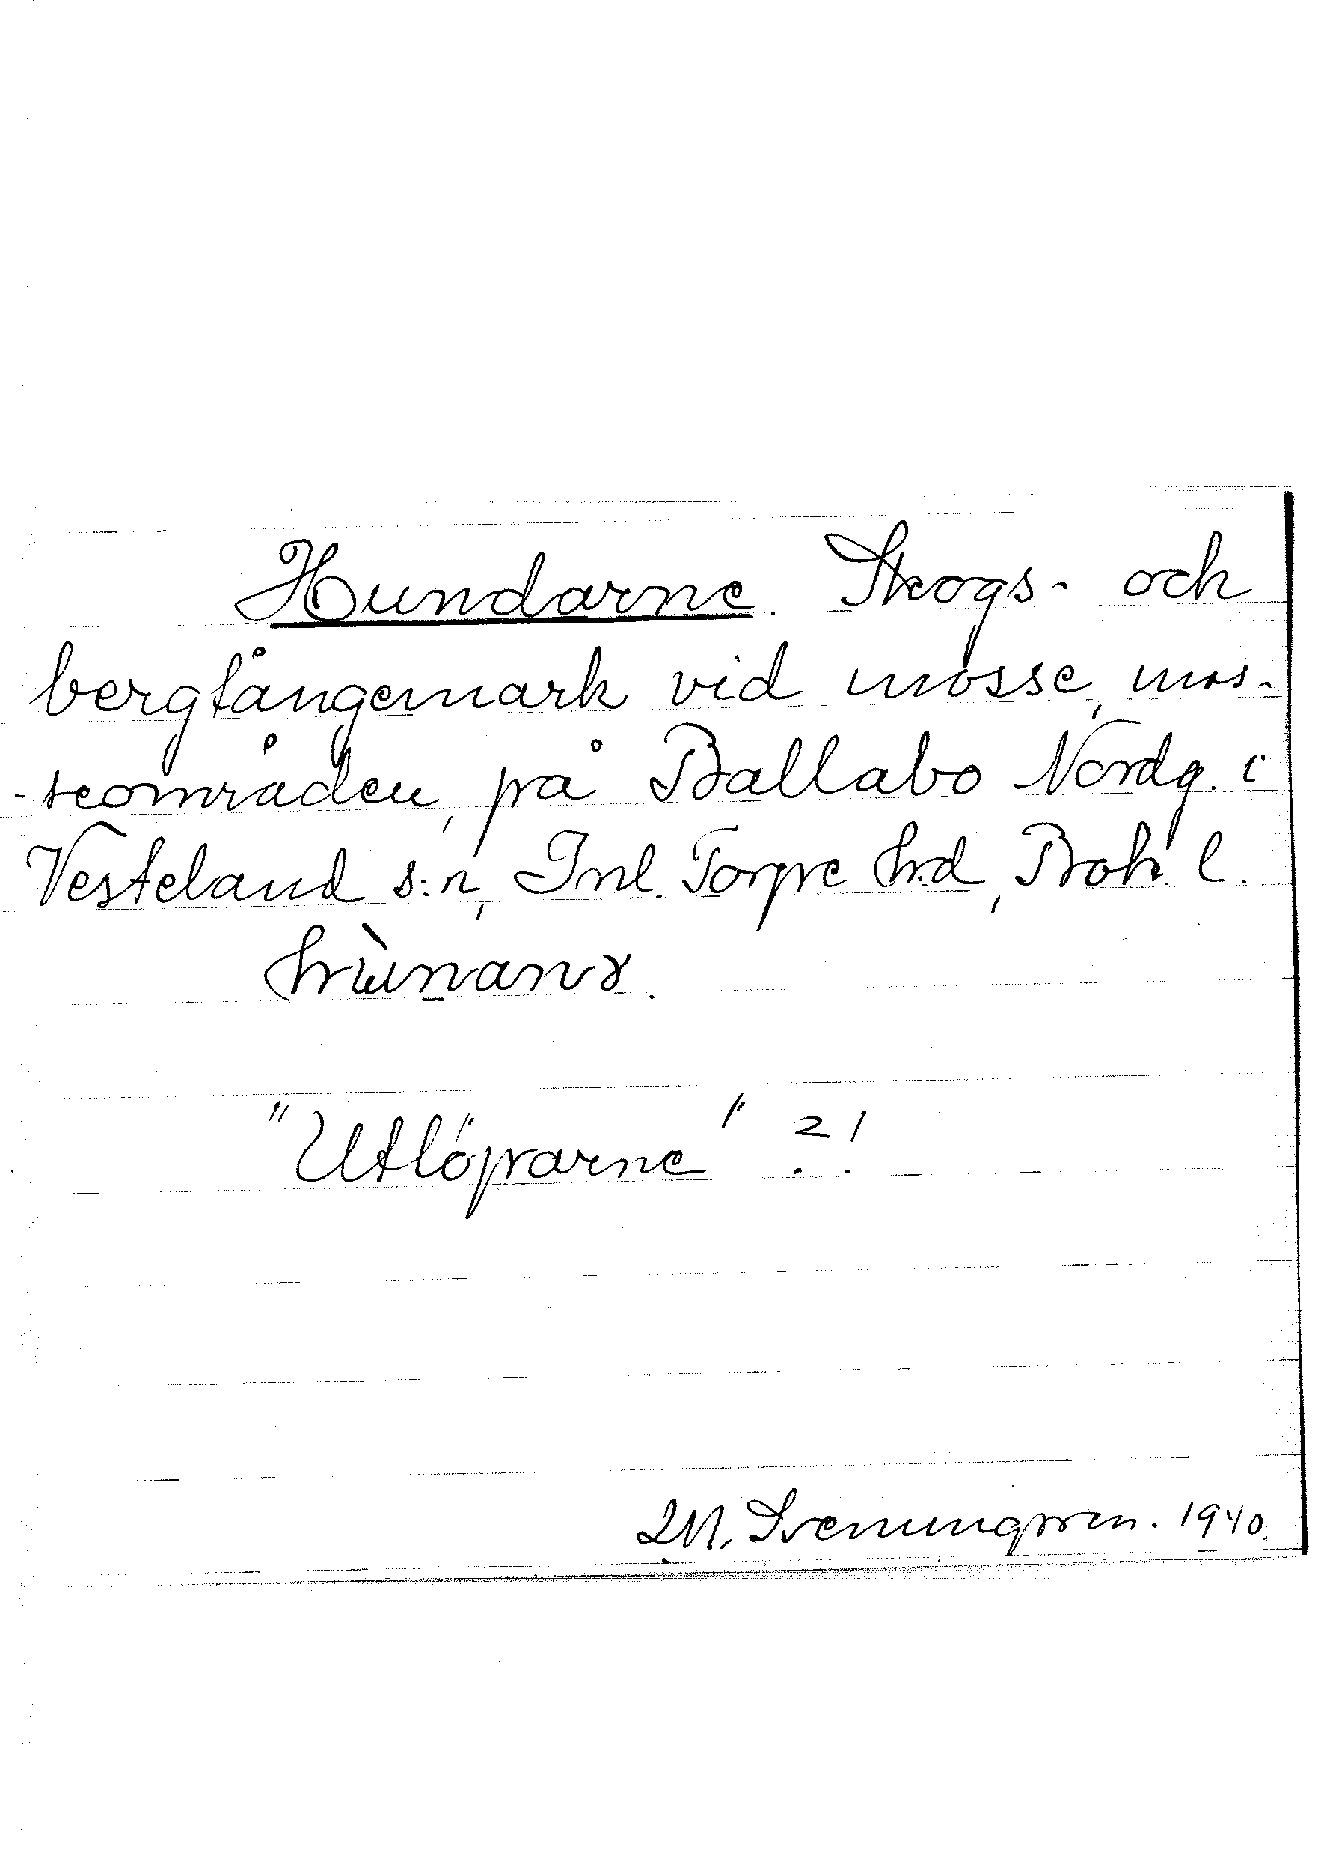 Hundarne. Skogs- och
bergtångemark vid mosse, mos-
-seområden, på Ballabo Nordg. i
Vesteland s:n, Inl. Torpe hd, Boh l.
"Utlöparne" ?!
M. Svenungsson. 1940.